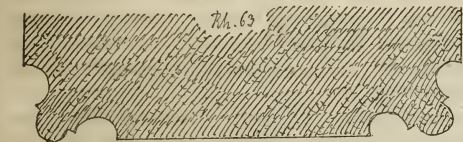 Rh. 63